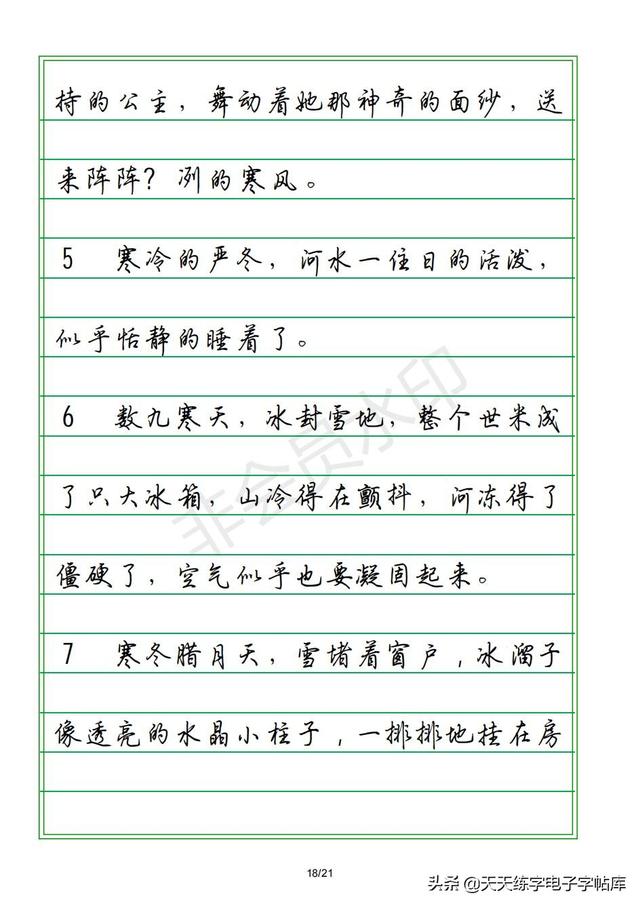 持的公主，舞动着她那神奇的面纱，送
来阵阵？冽的寒风。
5 寒冷的严冬，河水一住日的活泼，
似乎恬静的睡着了。
6 数九寒天，冰封雪地，整个世米成
了只大冰箱，山冷得在颤抖，河冻得了
僵硬了，空气似乎也要凝固起来。
7 寒冬腊月天，雪堵着窗户，冰溜子
像透亮的水晶小柱子，一排排地挂在房
非会员水印
18/21
头条 @天天练字电子字帖库